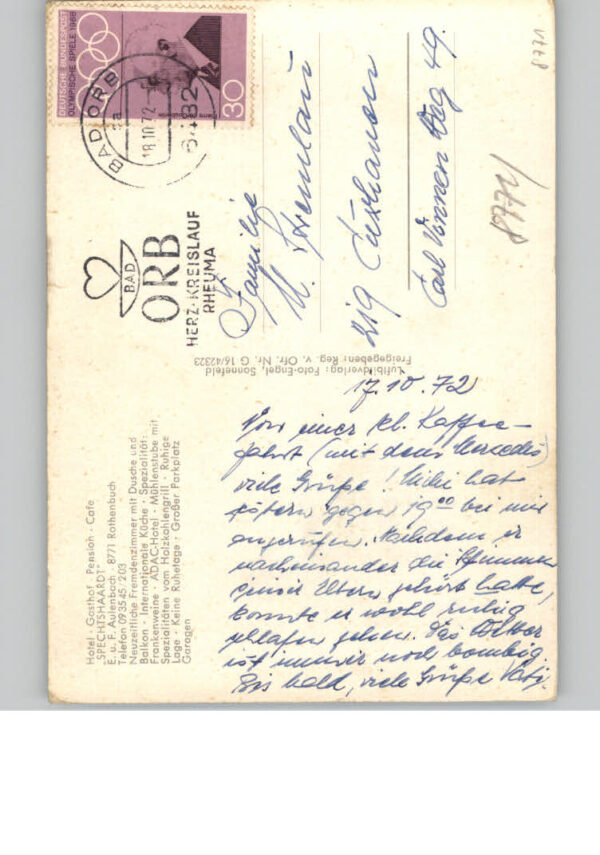 Hotel · Gasthof · Pension · Cafe
„SPECHTSHAARDT"
E. u. F. Aulenbach · 8771 Rothenbuch
Telefon 093545/203
Neuzeitliche Fremdenzimmer mit Dusche und
Balkon · Internationale Küche · Spezialität:
Frankenweine · ADAC-Hotel · Mühlenstube mit
Spezialitäten vom Holzkohlengrill · Ruhige
Lage · Keine Ruhetage · Großer Parkplatz
Garagen
DEUTSCHE BUNDESPOST
OLYMPISCHE SPIELE 1968
30
BAD ORB
aa
18.10.72
6482
BAD
ORB
HERZ · KREISLAUF
RHEUMA
Luftbildverlag: Foto-Engel, Sonnefeld
Freigegeben: Reg. v. Ofr. Nr. G 16/42323
Familie
219 Cuxhaven
Carl Vinnen Weg 49.
8771
8771/
17.10.72
Von einer kl. Kaffee-
fahrt (mit dem Mercedes)
viele Grüße! hat
gestern gegen 19 00 bei mir
angerufen. Nachdem er
nacheinander die Stimmen
seiner Eltern gehört hatte,
konnte er wohl ruhig
schlafen gehen. Das Wetter
ist immer noch bombig.
Bis bald, viele Grüße Vati.